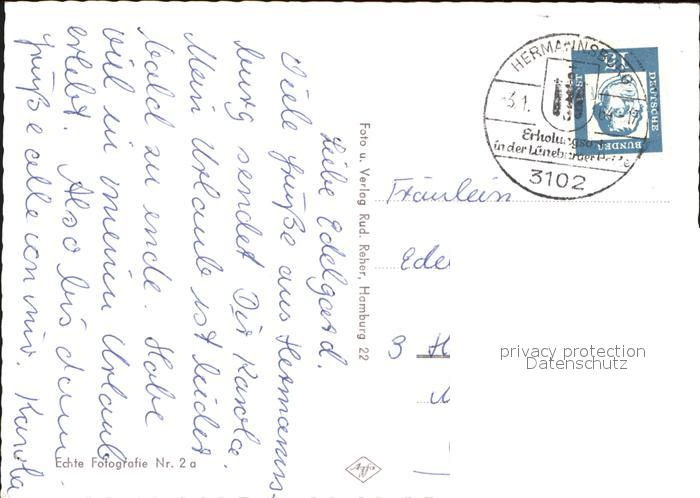 Liebe Edelgard.
Viele Grüße aus Hermanns-
burg sendet Dir Karola.
Mein Urlaub ist leider
bald zu ende. Habe
viel in meinem Urlaub
erlebt. Also bis dann
grüße alle von mir. Karola
Foto u. Verlag Rud. Reher, Hamburg 22
Echte Fotografie Nr. 2 a
Agfa
HERMANNSBURG
Erholungsort
in der Lüneburger Heide
3102
DEUTSCHE
BUNDESPOST
Fräulein
Ede
3 H
privacy protection
Datenschutz